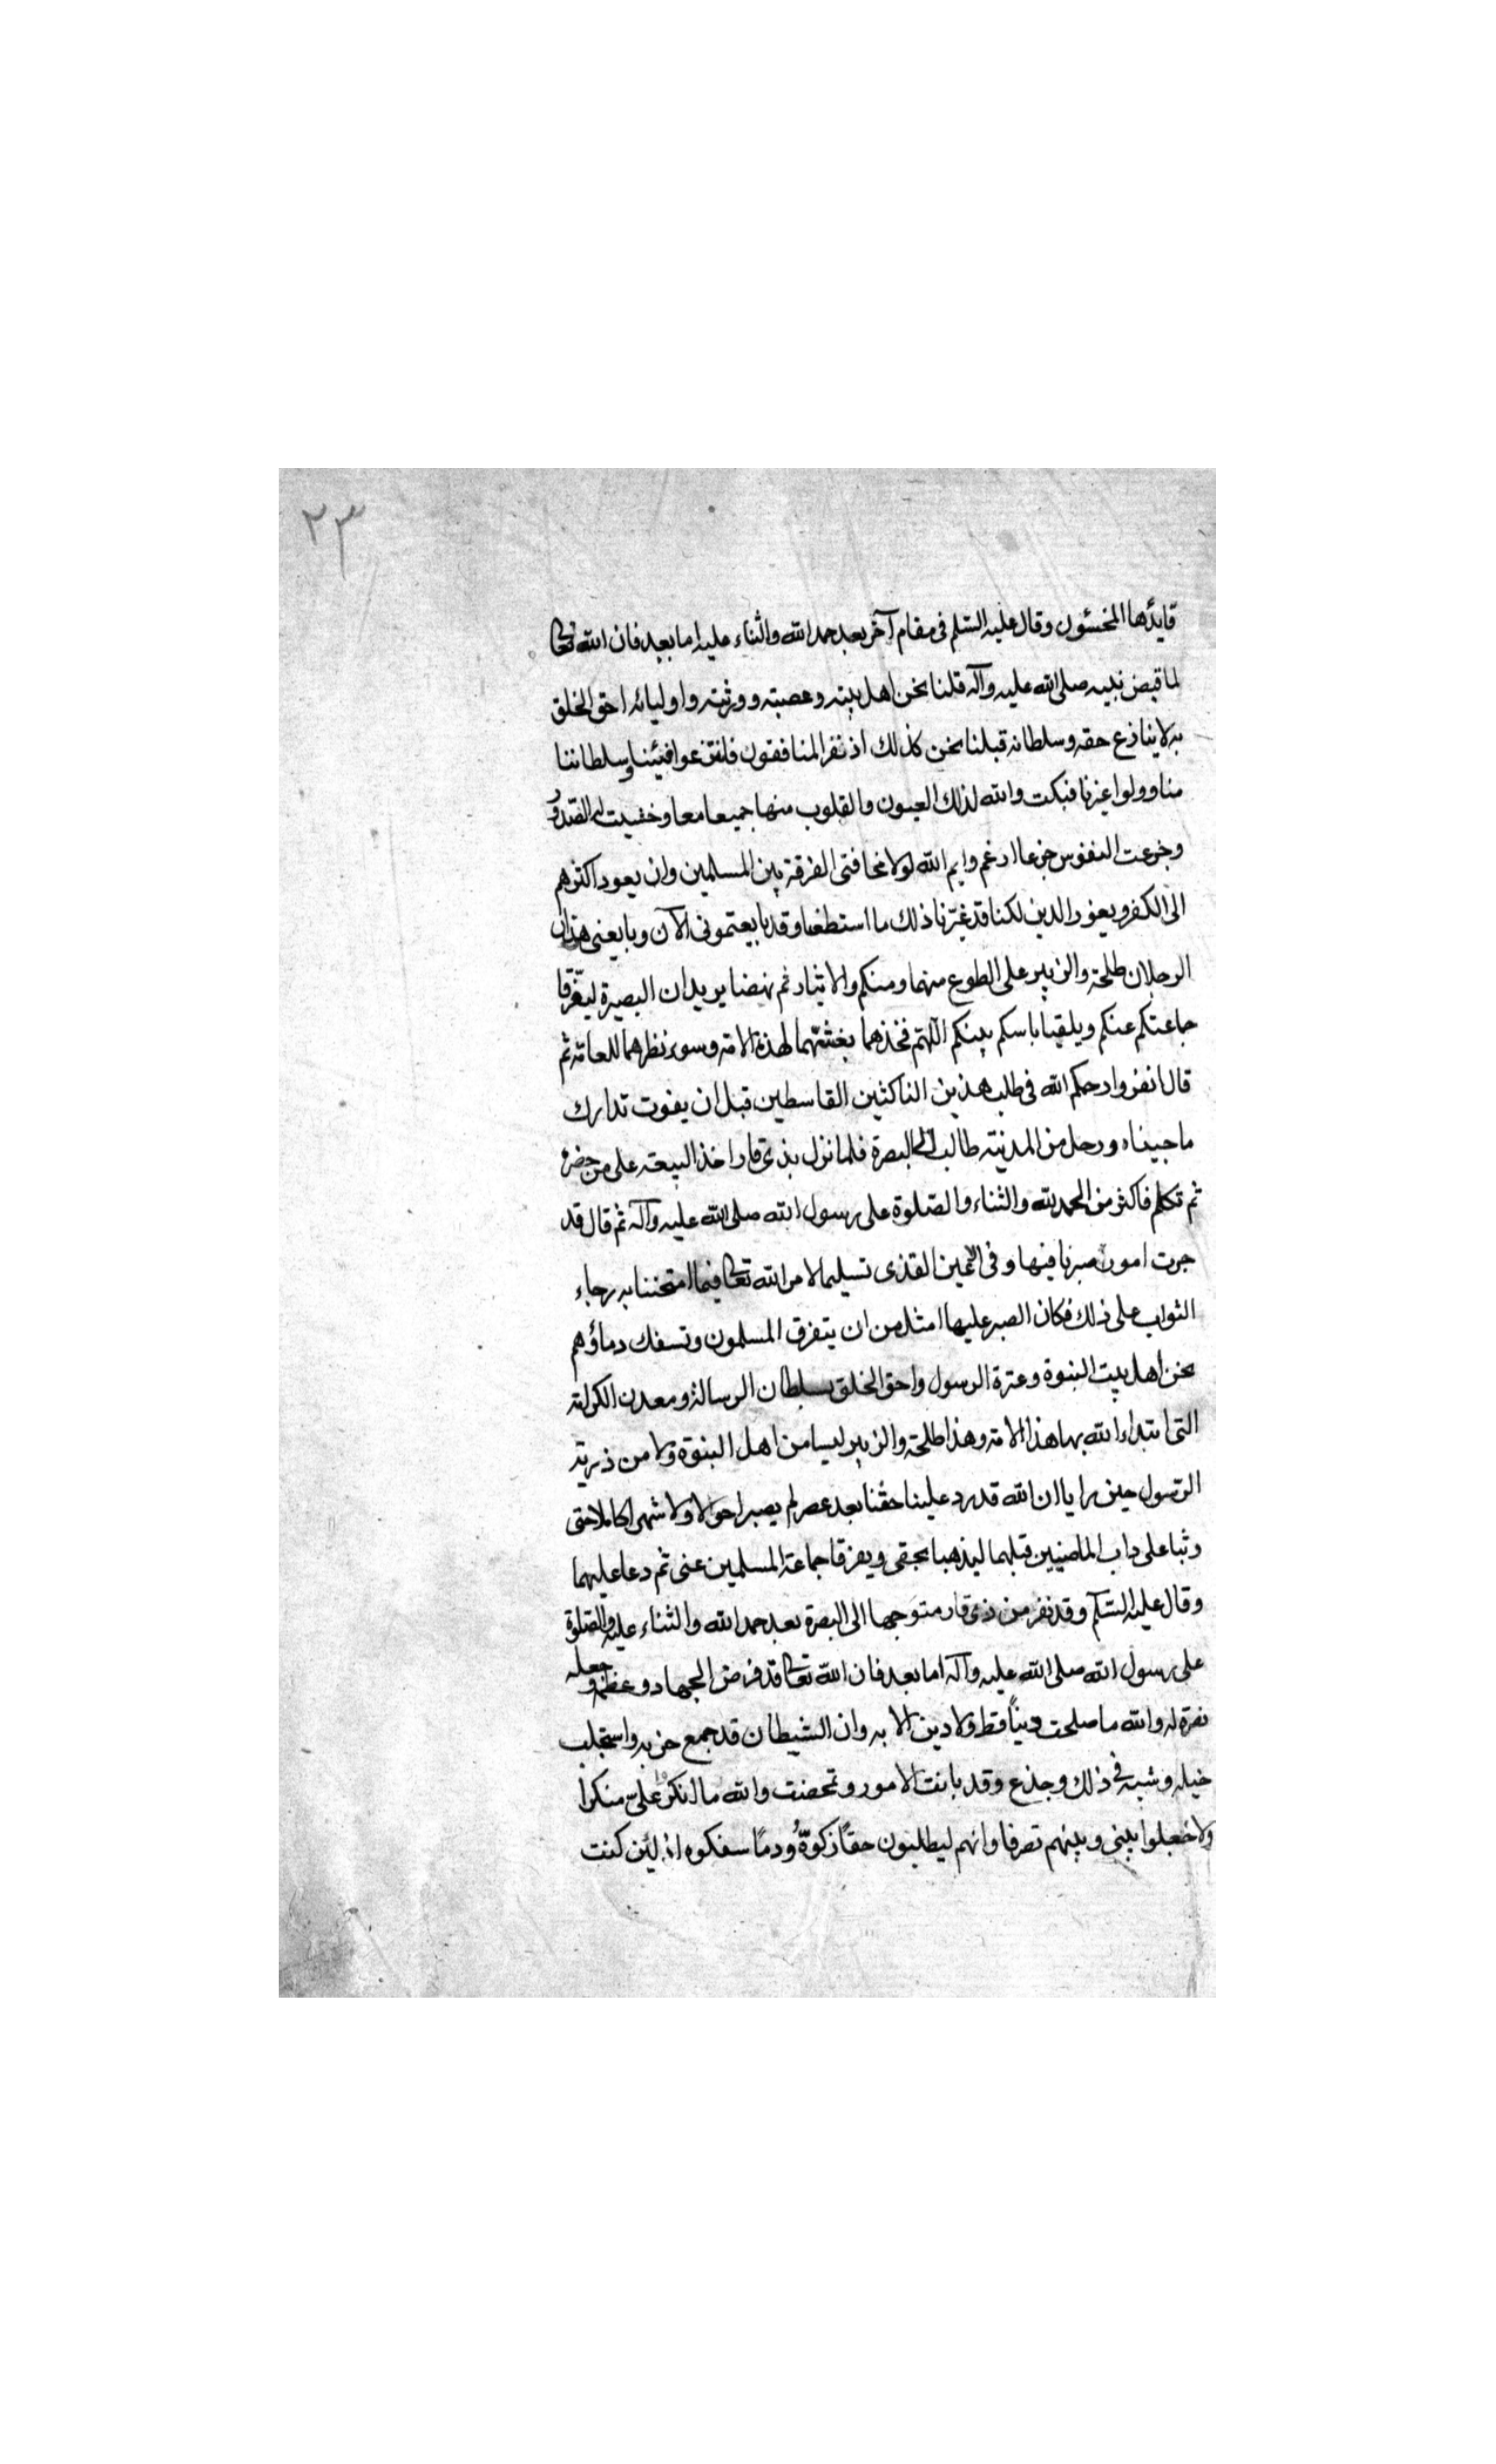 ٢٣
قايدها المخسئون وقال عليه السّلم فى مقام آخر بعد حمد الله والثناء عليه اما بعد فان الله تعالى
لما قبض نبيه صلى الله عليه وآله قلنا نحن اهل بيته وعصبته وورثته واوليائه احق الخلق
به لا ينازع حقه وسلطانه قبلنا نحن كذلك اذ نفر المنافقون فانتزعوا فيئنا وسلطاننا
منا وولوا غيرنا فبكت والله لذلك العيون والقلوب منها جميعا معا وخشيت له الصّدور
وجزعت النفوس جزعا ارغم وايم الله لولا مخافتى الفرقة بين المسلمين وان يعود اكثرهم
الى الكفر ويعور الدين لكنا قد غيّرنا ذلك ما استطعنا وقد بايعتمونى الآن وبايعنى هذان
الرجلان طلحة والزبير على الطوع منهما ومنكم والايثار ثم نهضا يريدان البصرة ليفرّقا
جماعتكم عنكم ويلقيا باسكم بينكم اللّهم فخذهما بغشّهما لهذه الامة وسوء نظرهما للعامة ثم
قال انفروا رحمكم الله فى طلب هذين الناكثين القاسطين قبل ان يفوت تدارك
ما جنياه ورحل من المدينة طالبا الى البصرة فلما نزل بذى قار اخذ البيعة على من حضره
ثم تكلم فاكثر من الحمد لله والثناء والصّلوة على رسول الله صلى الله عليه وآله ثم قال قد
جرت امور صبرنا فيها وفى الاعين القذى تسليما لامر الله تعالى فيما امتحننا به رجاء
الثواب على ذلك فكان الصبر عليها امثل من ان يتفرق المسلمون وتسفك دماؤهم
نحن اهل بيت النبوة وعترة الرسول واحق الخلق بسلطان الرسالة ومعدن الكرامة
التى ابتداء الله بها هذا الامة وهذا طلحة والزبير ليسا من اهل النبوّة ولا من ذرية
الرّسول حين رايا ان الله قد رد علينا حقنا بعد عصر لم يصبرا حولا ولا شهرا كاملا حتى
وثبا على داب الماضيين قبلهما ليذهبا بحقى ويفرقا جماعة المسلمين عنى ثم دعا عليهما
وقال عليه السّلم وقد نفر من ذى قار متوجها الى البصرة بعد حمد الله والثناء عليه والصّلوة
على رسول الله صلى الله عليه وآله اما بعد فان الله تعالى قد فرض الجهاد وعظّمه وجعله
نصرة له والله ما صلحت دينًا قط ولا دين الا به وان الشيطان قد جمع حزبه واستجلب
خيله وشبه فى ذلك وجذع وقد بانت الامور وتمحضت والله ما انكروا علىّ منكرا
ولا جعلوا بينى وبينهم نصرفا وانهم ليطلبون حقًا تركوهُ ودمًا سفكوه لئن كنت